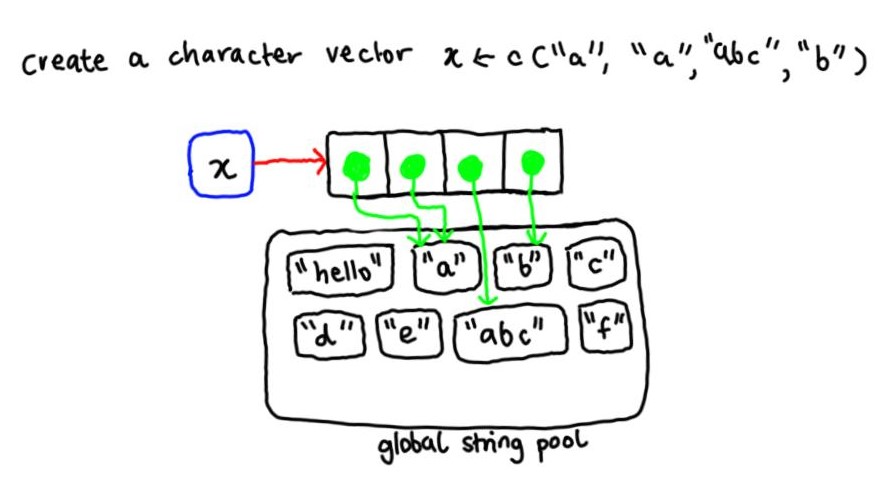 create a character vector x ← c("a", "a", "abc", "b")
x
"hello" "a" "b" "c"
"d" "e" "abc" "f"
global string pool